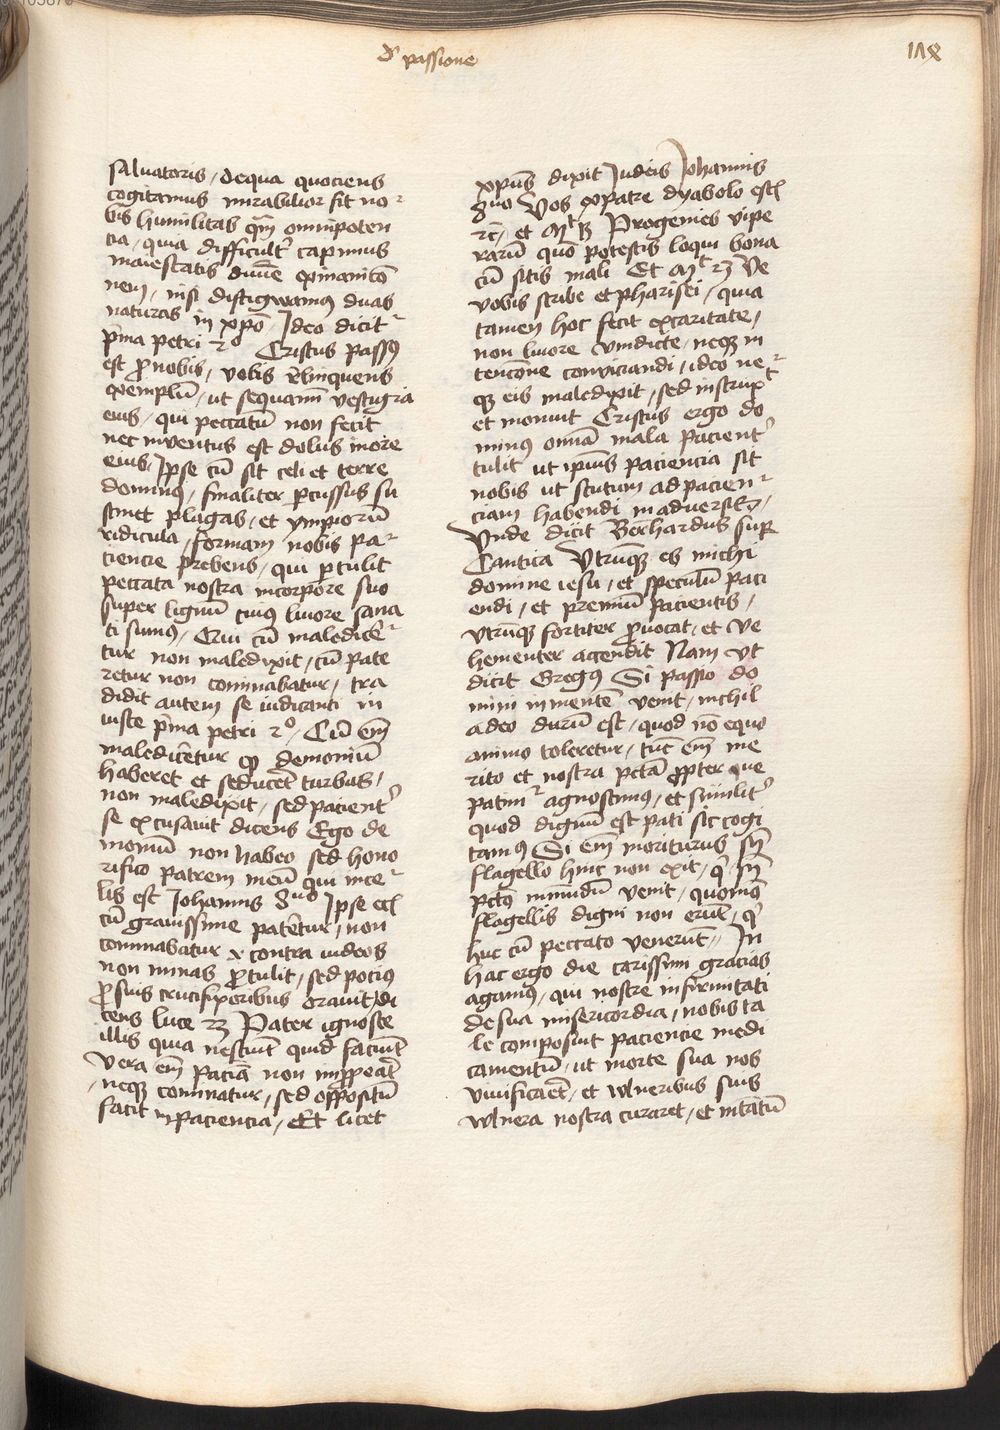 De passione
118
salvatoris / de qua quociens
cogitamus mirabilior fit no-
bis humilitas qͣm omnipoten
tia / quia difficult' capimus
maiestatis diuīe exinanicō
nem / nisi distigwamus duas
naturas in xpō / Ideo dicit
p̄ma petri 2º Cristus passꝰ
est ꝓ nobis / vobis r̄linquens
exemplū / ut sequamī vestigia
eius / qui peccatū non fecit
nec inventus est dolus in ore
eius / Ipse cū sit celi et terre
dominꝰ / finaliter p̄cussus su
stinet plagas / et ympiorū
ridicula / formam nobis pa-
ciencie prebens / qui ꝑtulit
peccata nostra in corpore suo
super lignū cuiꝰ livore sana
ti sumꝰ / Qui cū maledicē-
tur non maledixit / cū pate
retur non cominabatur / tra
didit autem se iudicanti in
iuste p̄ma petri 2º / Cū em̄
maledicētur ꝙ demoniū
haberet et seducēt turbas /
non maledixit / sed pacient'
se excusavit dicens Ego de
monīū non habeo sed hono
rifico patrem meū qui in ce-
lis est Johannis 8uo Ipse ecī
cū gravissime patētur / non
cominabatur x contra iudeos
non minas ꝓtulit / sed pociꝰ
ꝓ suis crucifixoribus oravit / di
cens luce 23 Pater ignosce
illis quia nesciūt quid faciūt
Vera em̄ paciā non impꝑeat'
/ neqꝫ cominatur / sed oppositū
facit inpaciencia / Et licet
xpūs dixit Judeis Johannis
8uo Vos ex patre dyabolo estꝭ
rc̄ / et Mt 3 Progenies vipe
rarū quō potestis loqui bona
cū sitis mali Et Mt 23 Ve
vobis scribe et pharisei / quia
tamen hoc fecit ex caritate /
non livore vindicte / neqꝫ in
tencōne conviciandi / ideo ne-
qꝫ eis maledixit / sed instruxt
et monuit Cristus ergo do
minꝰ omnā mala pacient'
tulit ut ipīus paciencia sit
nobis ut scutum ad pacien-
ciam habendi in adversitꝭ /
Unde dicit Berhardus sup̄
Cantica Utrūqꝫ es michi
domine iesu / et speculū paci
endi / et premiū pacientis /
utrūqꝫ fortiter ꝓvocat / et ve
hementer accendit Nam ut
dicit Gregꝰ Si passio do
mini in mentē venit / nichil
adeo durū est / quod nō equo
animo toleretur / tūc em̄ me
rito et nostra pctā ꝓpter que
patimur agnoscimꝰ / et similit'
quod dignū est pati sic cogi
tamꝰ Si em̄ moriturus sn̄
flagello hinc non exit / q' sn̄
pctō in mūdū venit / quomō
flagellis digni non erūt / q'
huc cū peccato venerūt // In
hac ergo die carissimi gracias
agamꝰ / qui nostre infirmitati
de sua misericordia / nobis ta
le composuit paciencie medi
camentū / ut morte sua nos
vivificaēt / et wlneribus suis
wlnera nostra curaret / et intātū